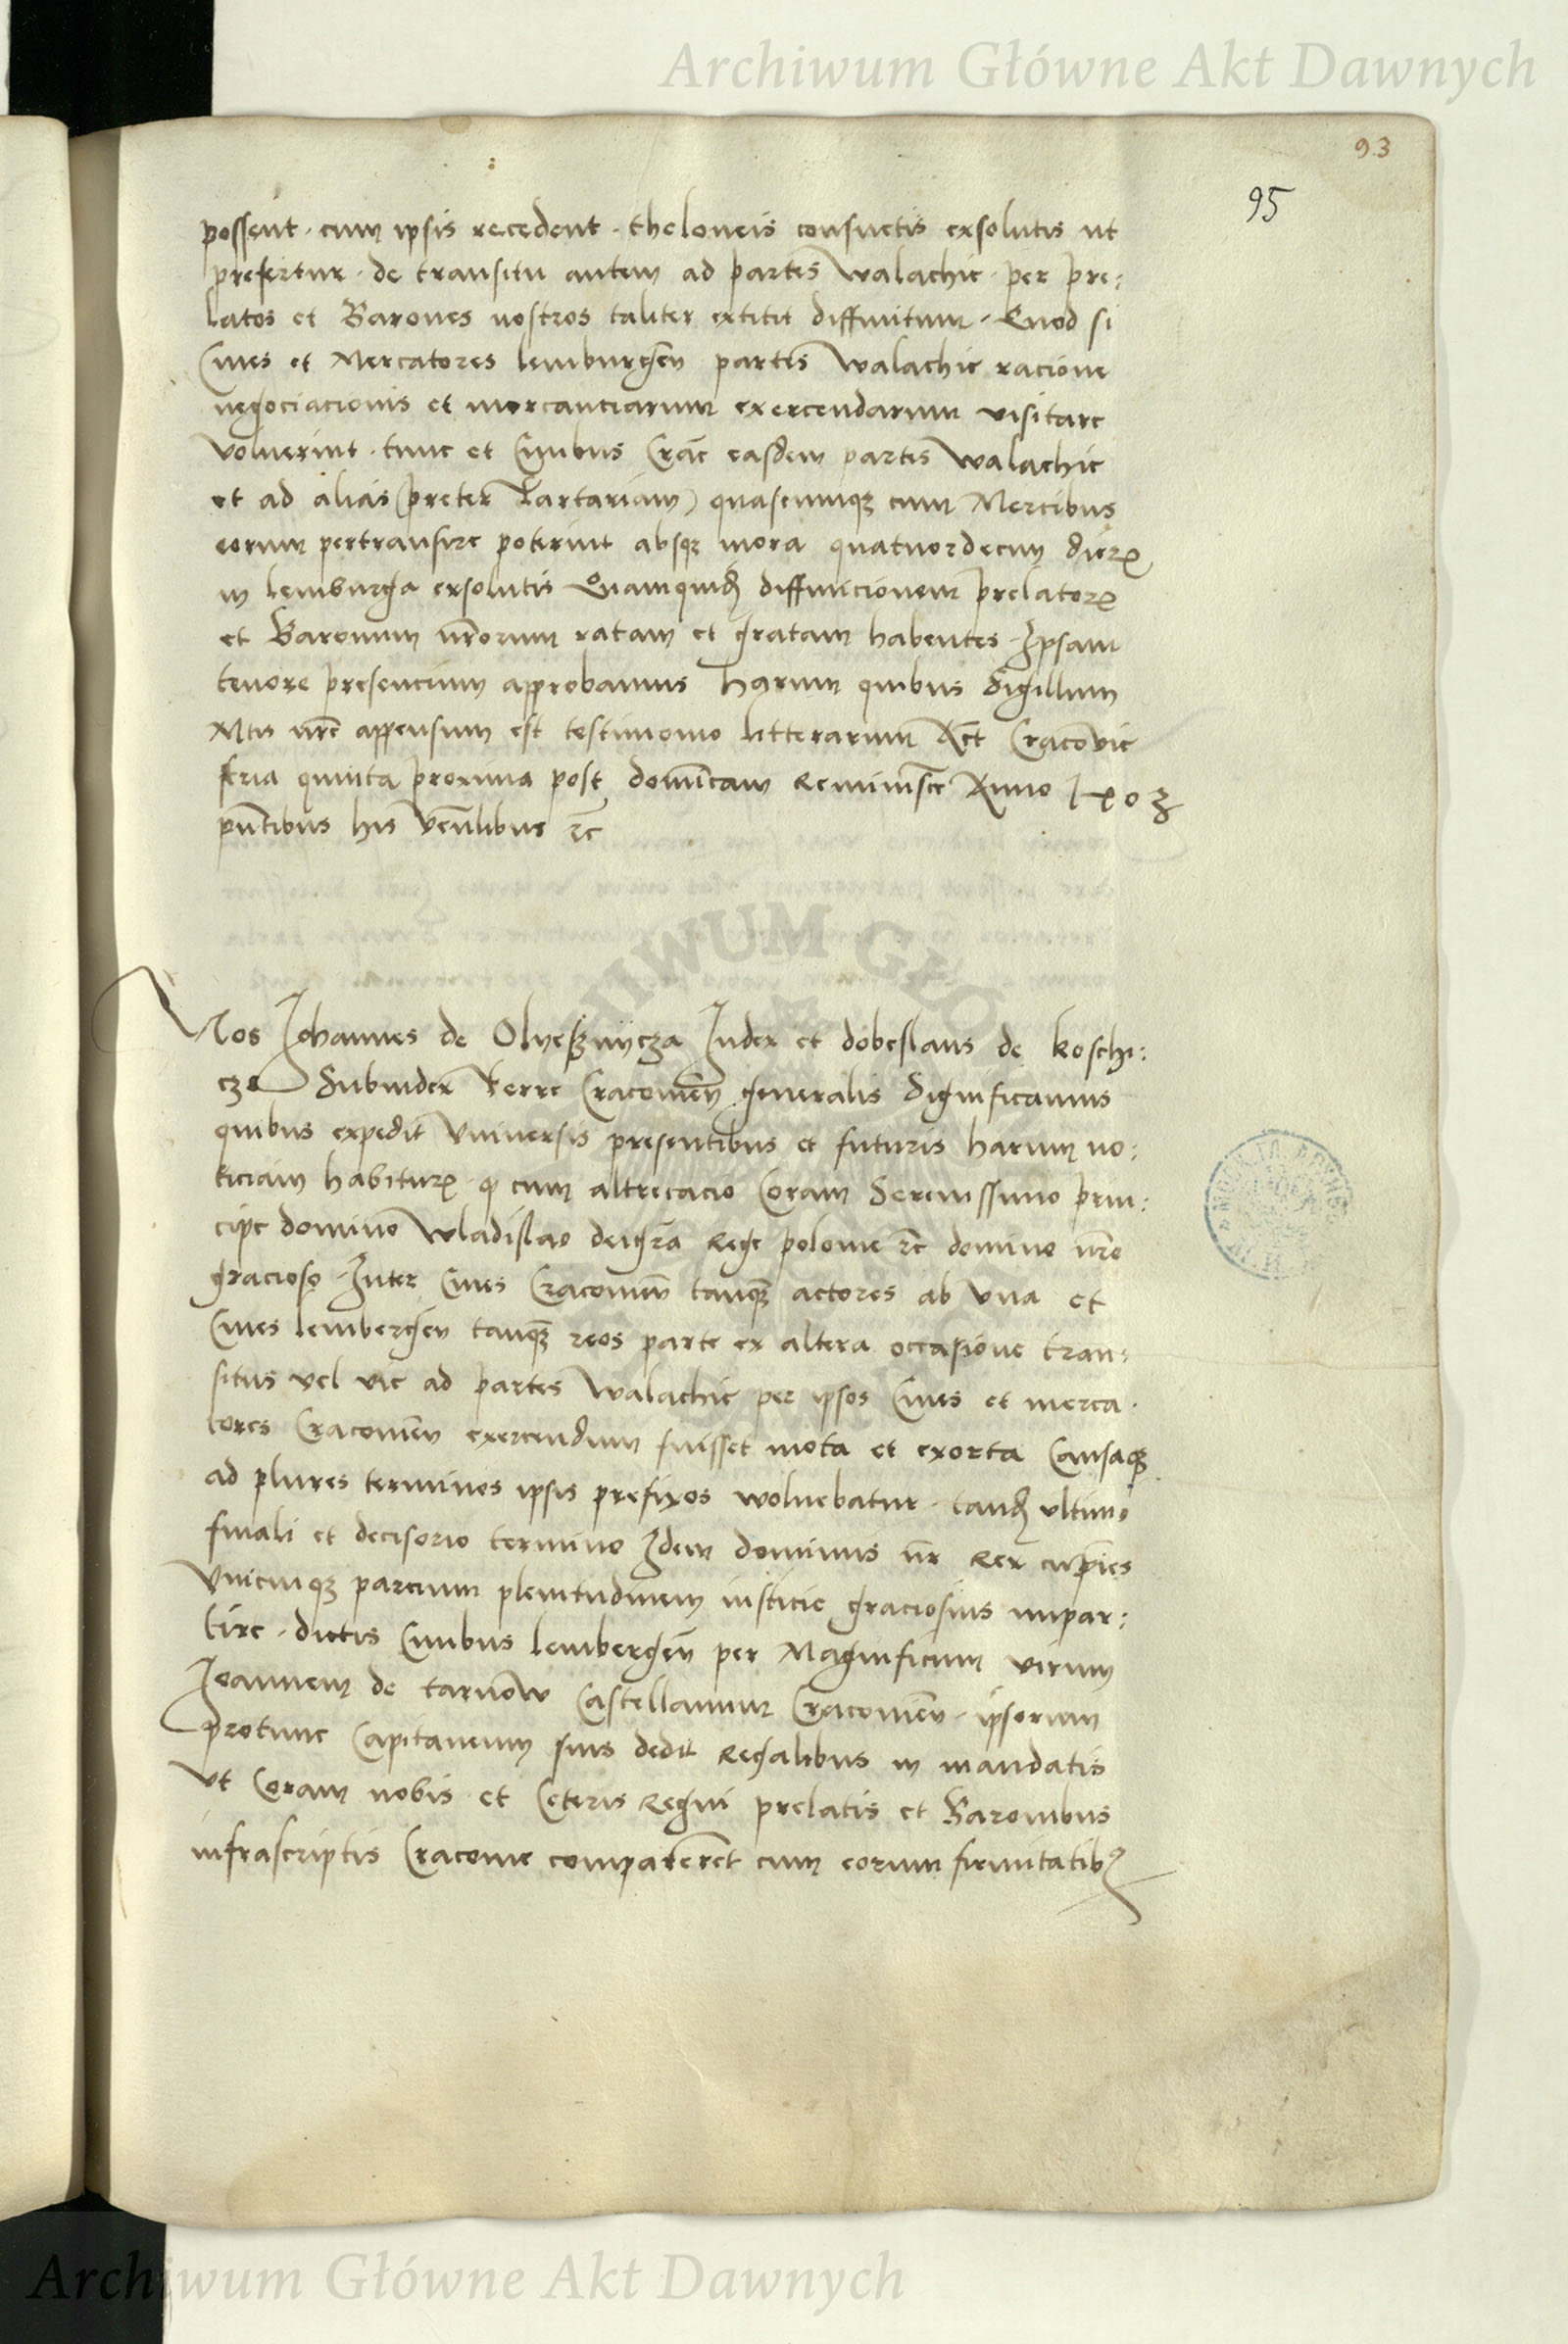 Archiwum Główne Akt Dawnych
93
95
possent · cum ipsis recedent · theloneis consuetis exsolutis ut
prefertur · de transitu autem ad partes Walachie · per pre:
latos et Barones nostros taliter extitit diffinitum · Quod si
Cives et Mercatores lemburgen̄ partes Walachie racione
negociacionis et mercanciarum exercendarum visitare
voluerint · tunc et Civibus Crac̄ easdem partes Walachie
et ad alias (preter Tartariam) quascumqꝫ cum Mercibus
eorum pertransire poterint absqꝫ mora quatuordecim dierꝝ
in lemburga exsolutis Quamquidꝫ diffinicionem prelatorꝝ
et Baronum nr̄orum ratam et gratam habentes · Ipsam
tenore presencium approbamus harum quibus Sigillum
Mtis nr̄e appensum est testimonio litterarum Act̄ Cracovie
feria quinta proxima post domīcam Reminisc̄e Anno 1403
pn̄tibus his ven̄libus ꝛc̄
Nos Johannes de Olyeßnÿcza Judex et dobeslaus de koschi:
cze Subiudex Terre Cracovien̄ generalis Significamus
quibus expedit Vniversis presentibus et futuris harum no:
ticiam habiturꝝ · ꝙ cum altrecacio Coram Serenissimo prin:
cipe domino Wladislao deigr̄a Rege polonie ꝛc̄ domino nr̄o
gracioso · Inter Cives Cracovien̄ tanqꝫ actores ab vna et
Cives lembergen̄ tanqꝫ reos parte ex altera occasione tran:
situs vel vie ad partes Walachie per ipsos Cives et merca·
tores Cracovien̄ exercendum fuisset mota et exorta Causaqꝫ
ad plures terminos ipsis prefixos wolvebatur · tandꝫ ultimo
finali et decisorio termino Idem dominus nr̄ Rex cupiēs
Vnicuiqꝫ parcium plenitudinem iusticie graciosius impar:
tire · dictis Civibus lembergen̄ per Magnificum virum
Joannem de tarnow Castellanum Cracovien̄ · ipsorum
protunc Capitaneum suis dedit Regalibus in mandatis
Vt Coram nobis et Ceteris Regni prelatis et Baronibus
infrascriptis Cracovie comparerēt cum eorum firmitatibꝫ
Archiwum Główne Akt Dawnych